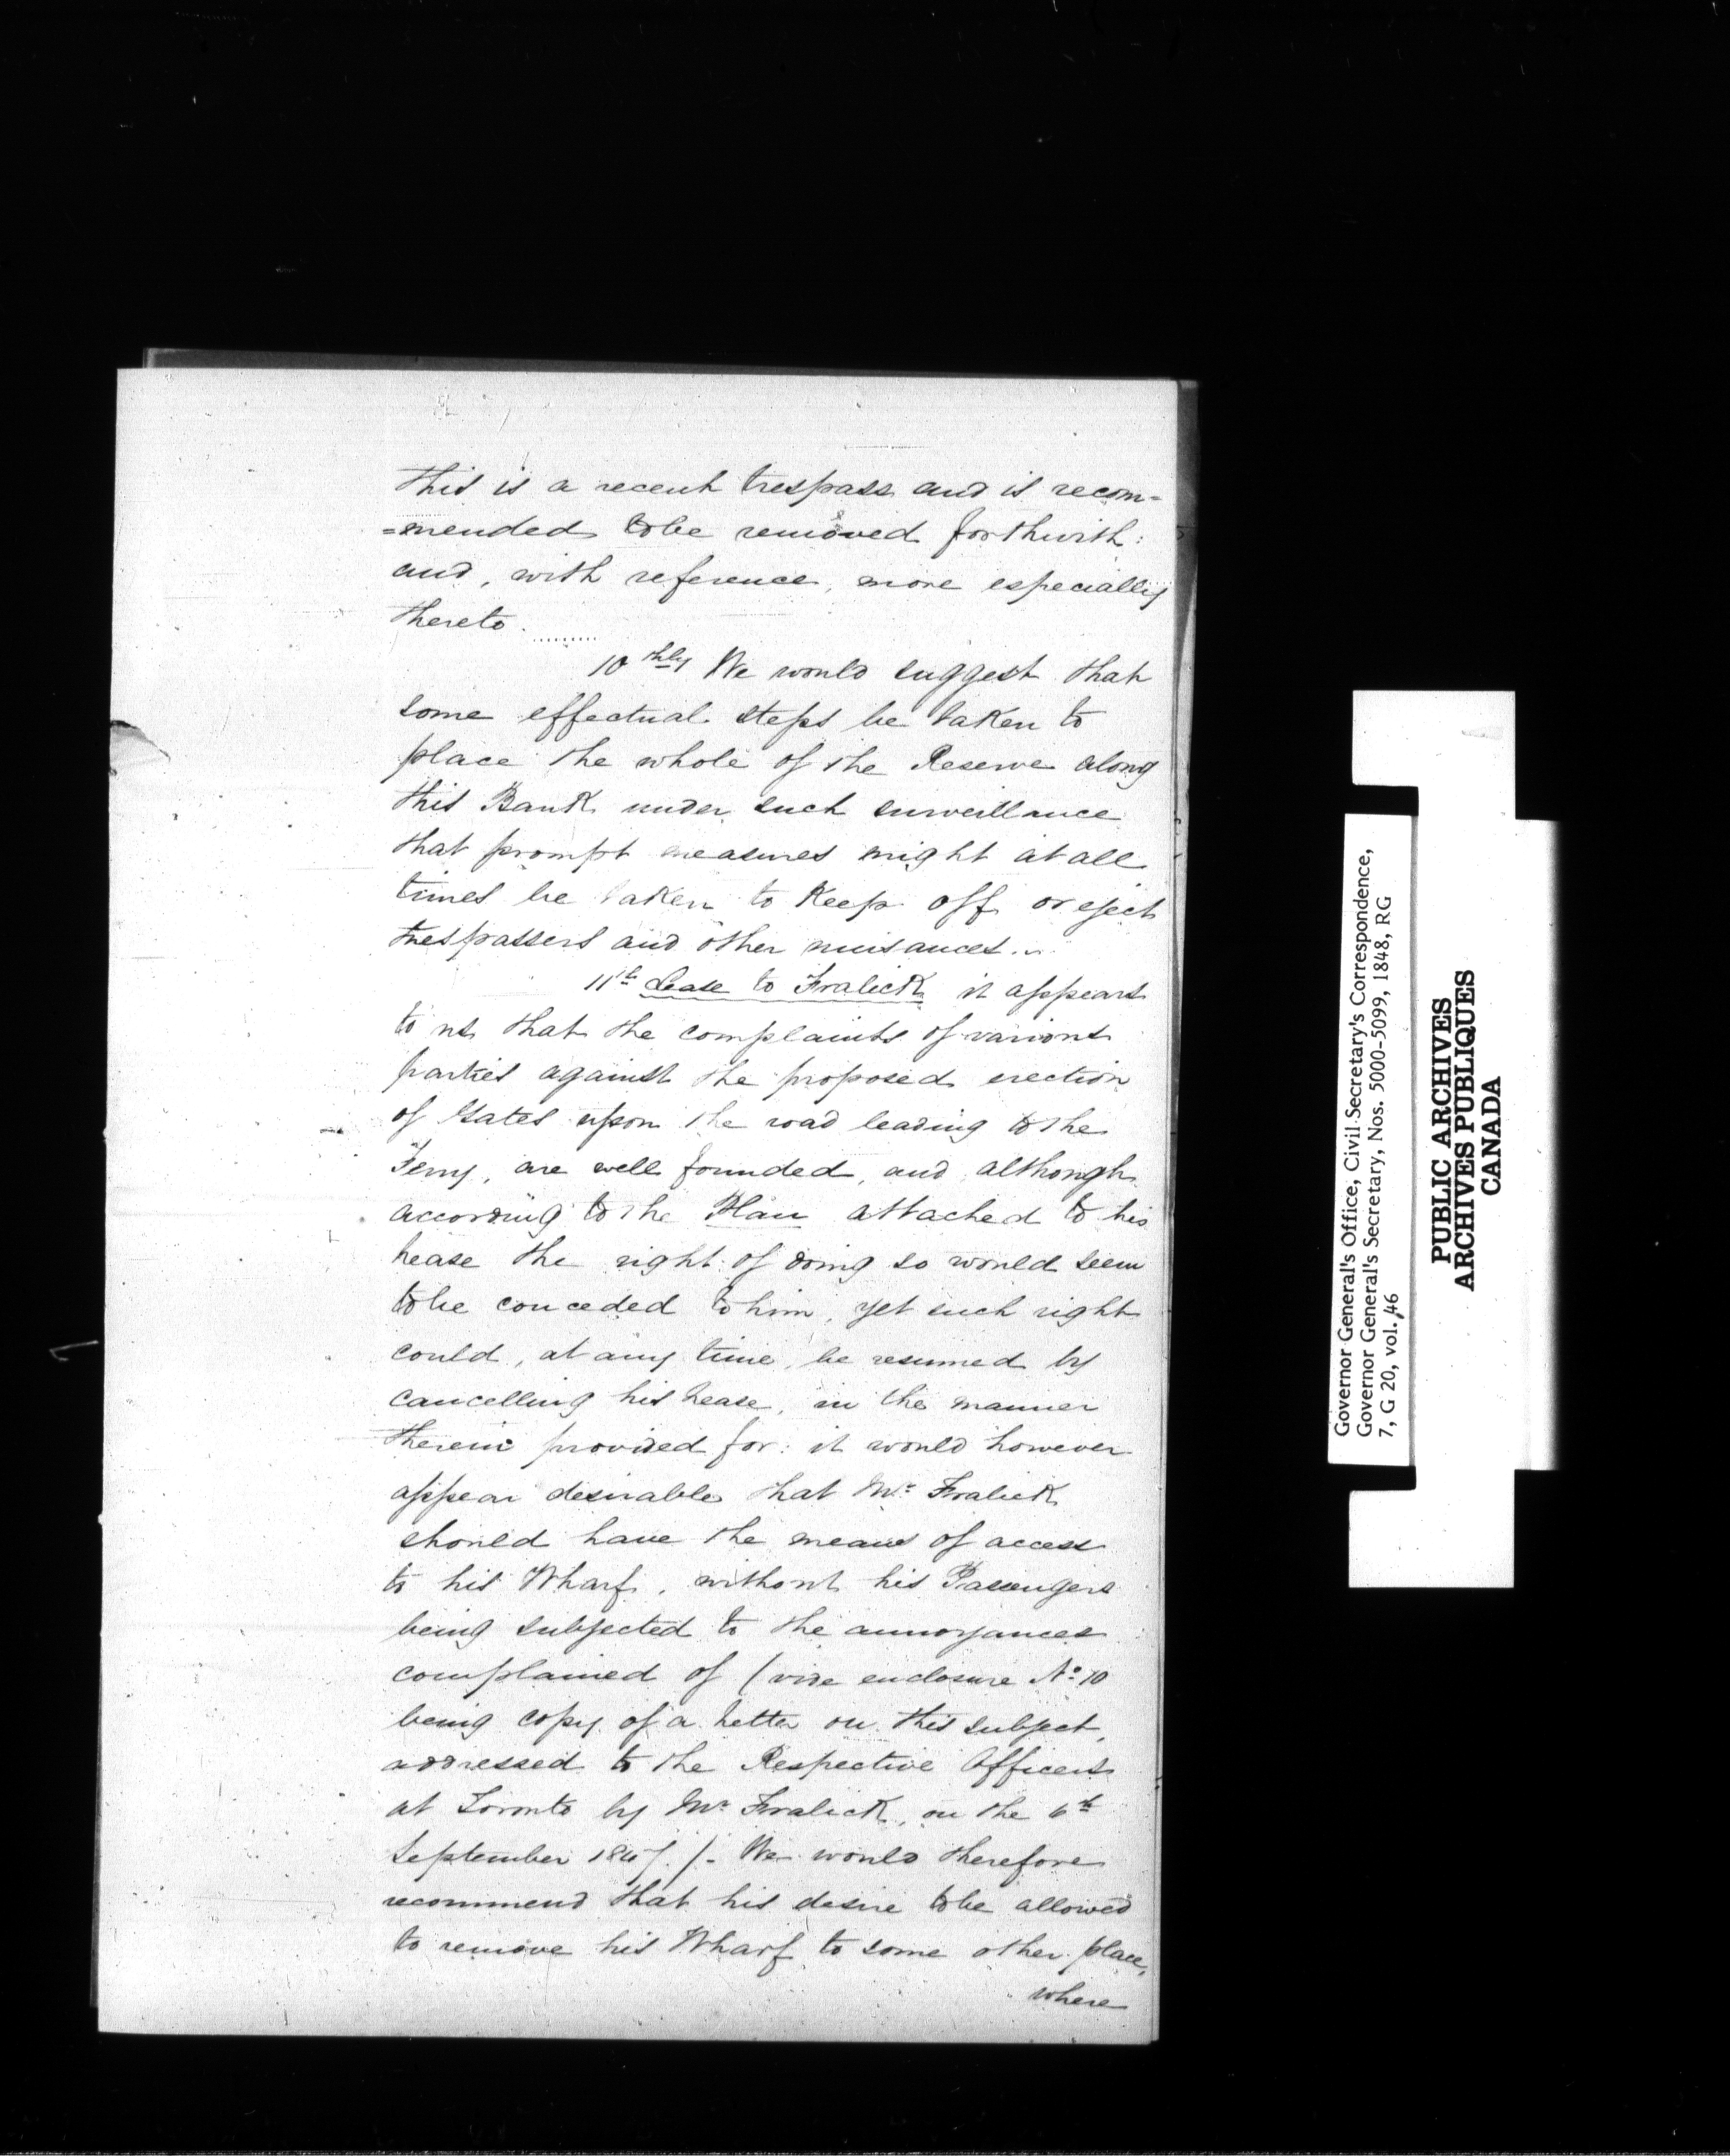 This is a recent trespass and is recom=
=mended to be removed forthwith:
and, with reference, more especially
thereto.........
10thly We would suggest that
some effectual steps be taken to
place the whole of the Reserve along
this Bank under such surveillance
that prompt measures might at all
times be taken to keep off or eject
trespassers and other nuisances..
11th Lease to Fralick it appears
to us that the complaints of various
parties against the proposed erection
of Gates upon the road leading to the
Ferry, are well founded, and although
according to the Plan attached to his
Lease the right of doing so would seem
to be conceded to him, yet such right
could, at any time, be resumed by
cancelling his Lease, in the manner
therein provided for: it would however
appear desirable that Mr. Fralick
should have the means of access
to his Wharf, without his Passengers
being subjected to the annoyances
complained of (vide enclosure No. 10
being copy of a Letter on this subject,
addressed to the Respective Officers
at Toronto by Mr Fralick, on the 6th
September 1847.)- We would therefore
recommend that his desire to be allowed
to remove his Wharf to some other place,
where
Governor General's Office, Civil Secretary's Correspondence,
Governor General's Secretary, Nos. 5000-5099, 1848, RG
7, G 20, vol. 46
PUBLIC ARCHIVES
ARCHIVES PUBLIQUES
CANADA